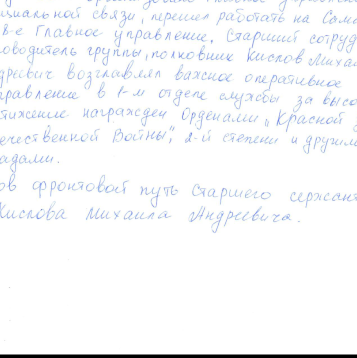 циальной связи, перешел работать на Сам
8-е Главное управление. Старший сотруд
оводитель группы, полковник Кислов Миха
дреевич возглавлял важное оперативное
правление в 1-м отделе службы за высо
тижение награжден Орденами „Красной
ечественной Войны", 2-й степени и другим
адами.
ов фронтовой путь старшего сержан
Кислова Михаила Андреевича.